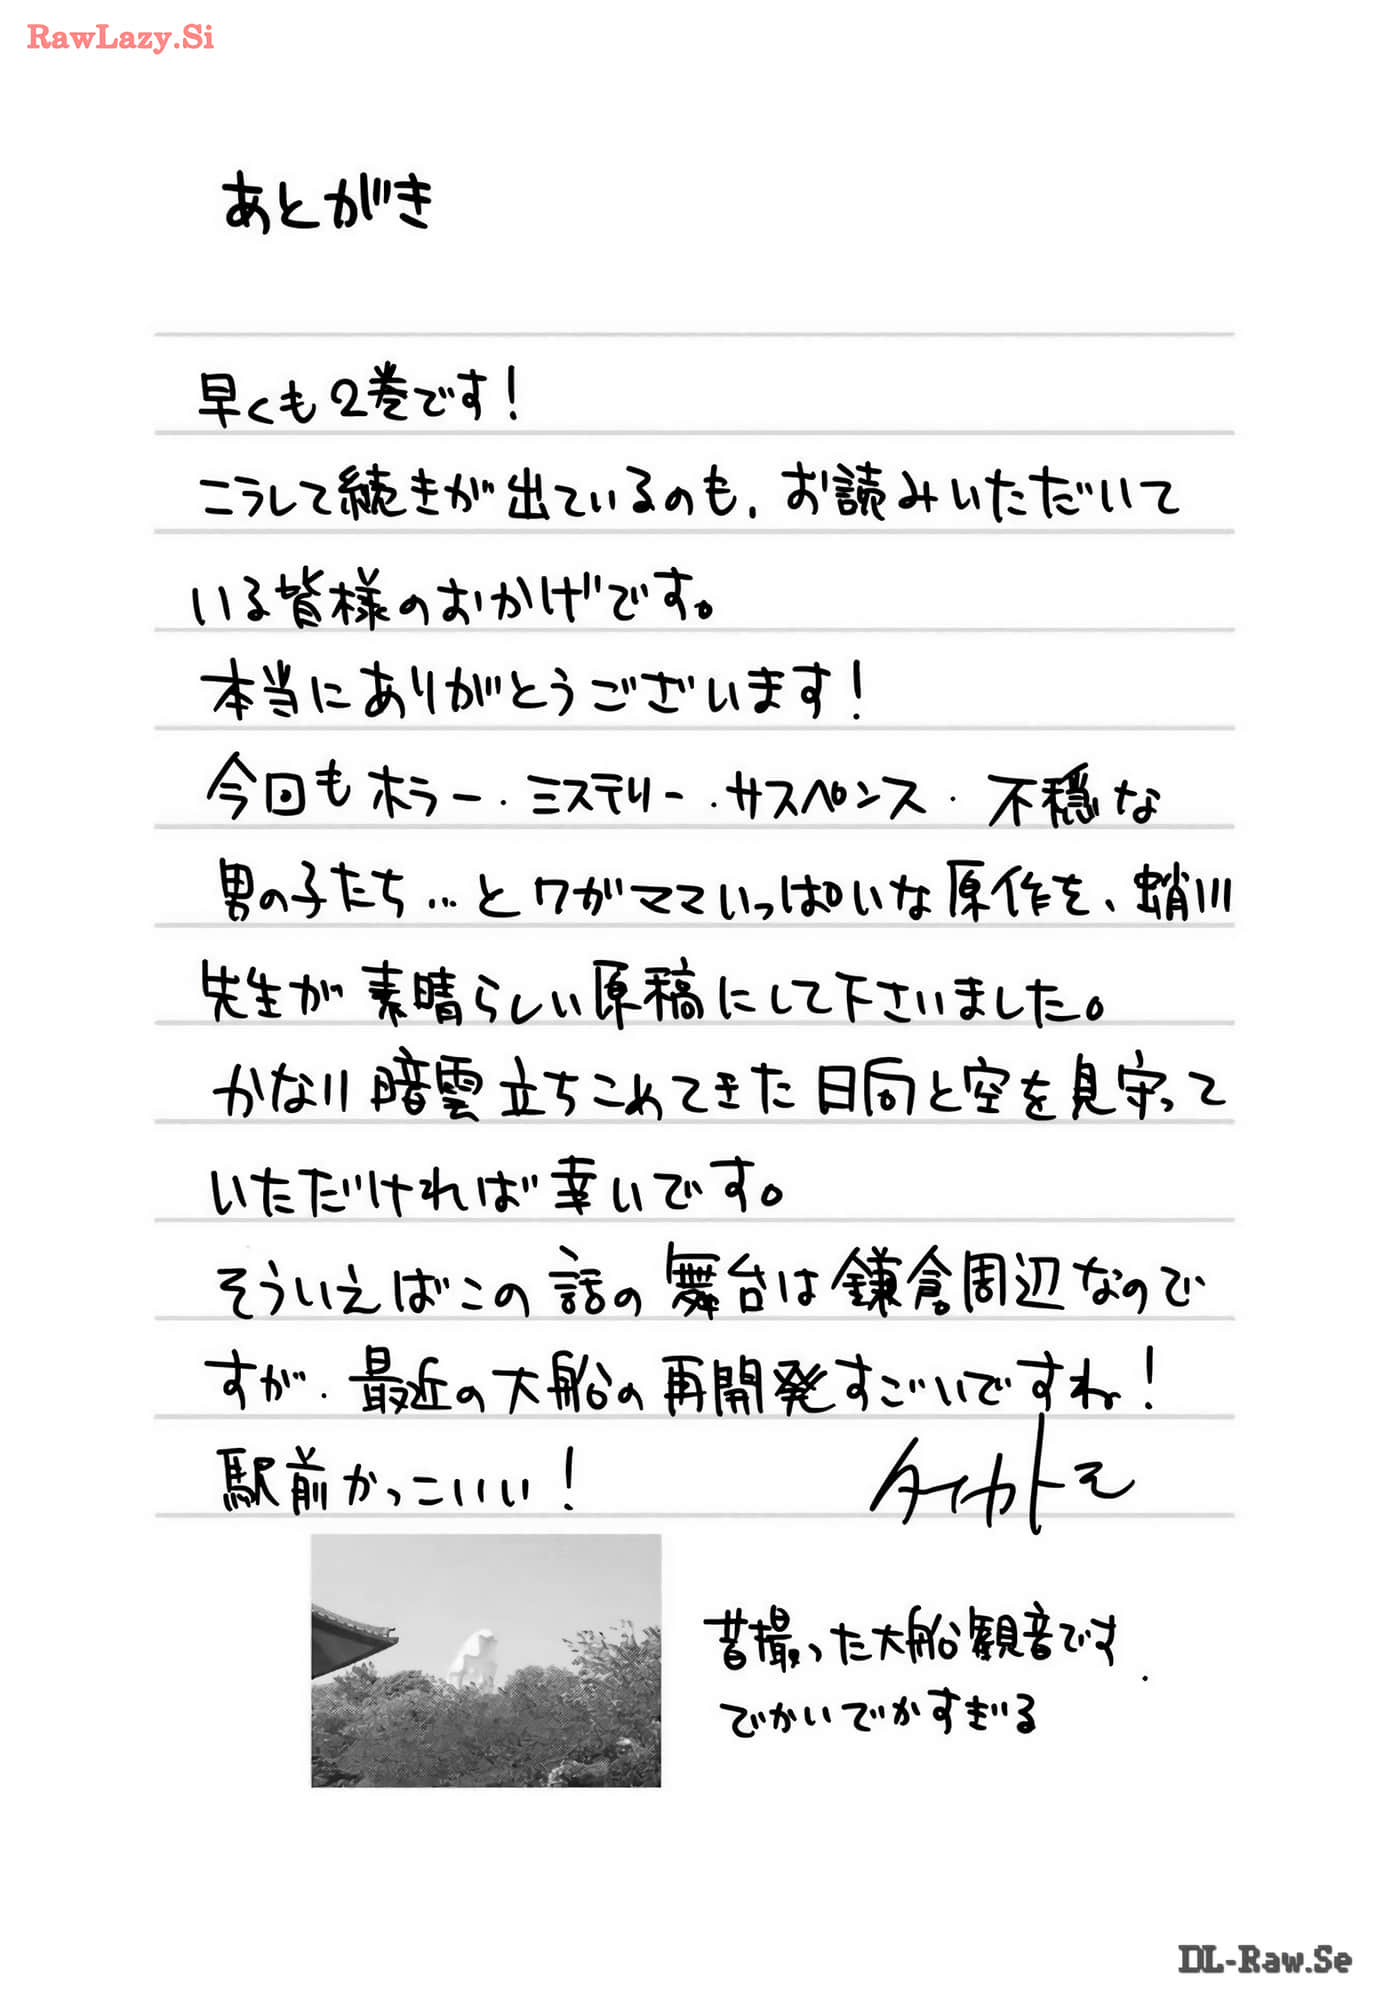 RawLazy.Si
あとがき
早くも2巻です!
こうして続きが出ているのも、お読みいただいて
いる皆様のおかげです。
本当にありがとうございます!
今回もホラー・ミステリー・サスペンス・不穏な
男の子たち…とワガママいっぱいな原作を、蛸川
先生が素晴らしい原稿にして下さいました。
かなり暗雲立ちこめてきた日向と空を見守って
いただければ幸いです。
そういえばこの話の舞台は鎌倉周辺なので
すが、最近の大船の再開発すごいですね!
駅前かっこいい!
昔撮った大船観音です.
でかいでかすぎる
DL-Raw.Se